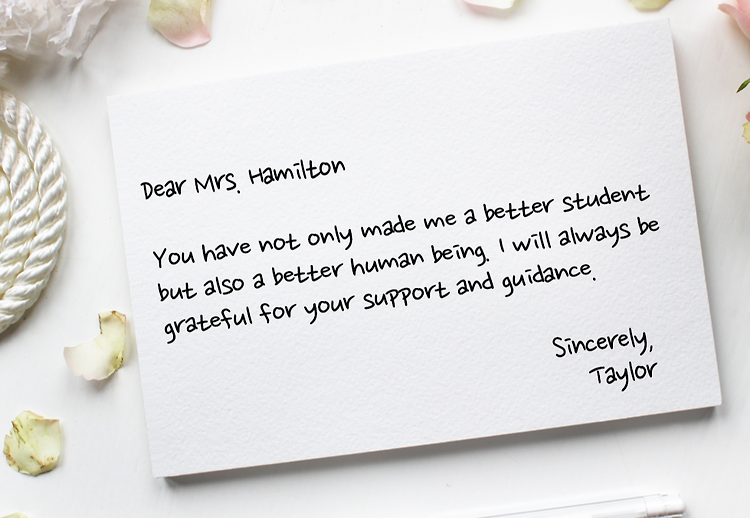 Dear Mrs. Hamilton
You have not only made me a better student
but also a better human being. I will always be
grateful for your support and guidance.
Sincerely,
Taylor